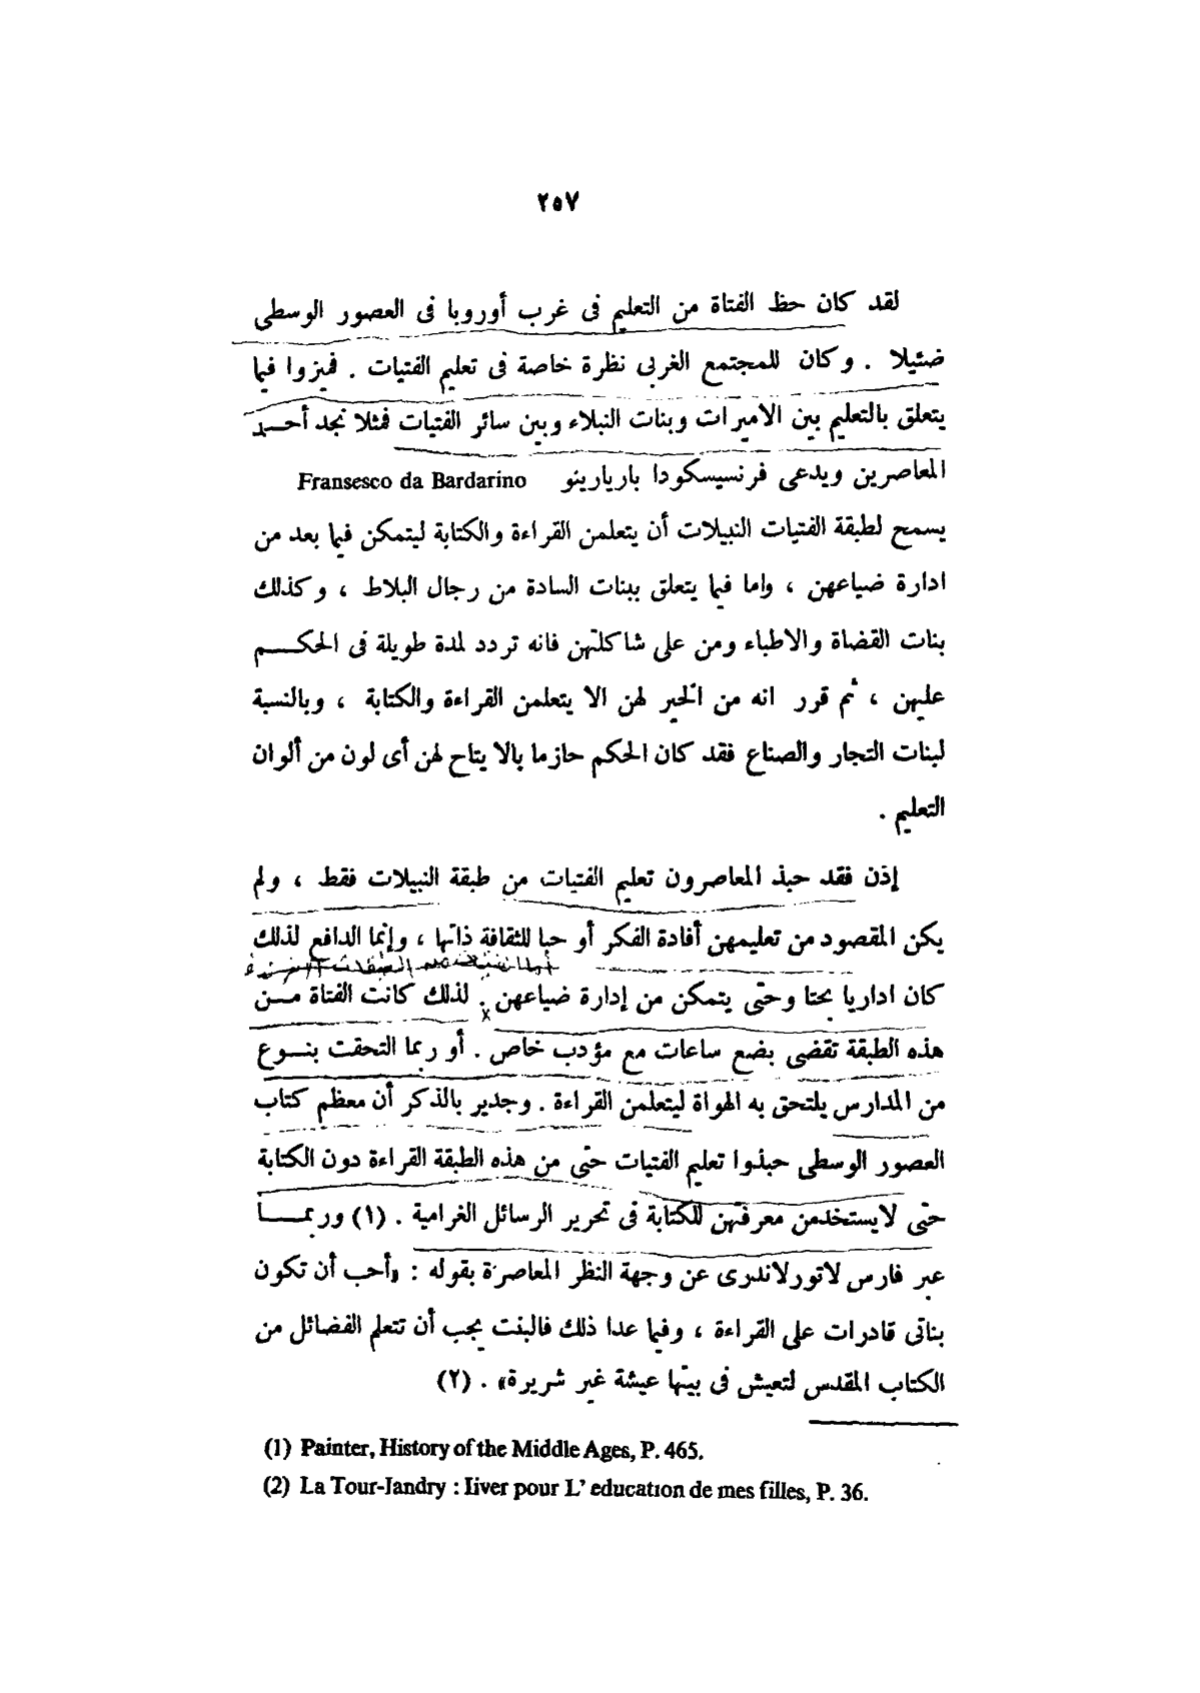 ٢٥٧
لقد كان حظ الفتاة من التعليم فى غرب أوروبا فى العصور الوسطى
ضئيلا . وكان للمجتمع الغربى نظرة خاصة فى تعليم الفتيات . فميزوا فيما
يتعلق بالتعليم بين الاميرات وبنات النبلاء وبين سائر الفتيات فمثلا نجد أحد
المعاصرين ويدعى فرنسيسكودا باريارينو Fransesco da Bardarino
يسمح لطبقة الفتيات النبيلات أن يتعلمن القراءة والكتابة ليتمكن فيما بعد من
ادارة ضياعهن ، واما فيما يتعلق ببنات السادة من رجال البلاط ، وكذلك
بنات القضاة والاطباء ومن على شاكلتهن فانه تردد لمدة طويلة فى الحكم
عليهن ، ثم قرر انه من الخير لهن الا يتعلمن القراءة والكتابة ، وبالنسبة
لبنات التجار والصناع فقد كان الحكم حازما بالا يتاح لهن أى لون من ألوان
التعليم .
إذن فقد حبذ المعاصرون تعليم الفتيات من طبقة النبيلات فقط ، ولم
يكن المقصود من تعليمهن أفادة الفكر أو حبا للثقافة ذاتها ، وإنما الدافع لذلك
كان اداريا بحتا وحتى يتمكن من إدارة ضياعهن . لذلك كانت الفتاة من
هذه الطبقة تقضى بضع ساعات مع مؤدب خاص . أو ربما التحقت بنوع
من المدارس يلتحق به الهواة ليتعلمن القراءة . وجدير بالذكر أن معظم كتاب
العصور الوسطى حبذوا تعليم الفتيات حتى من هذه الطبقة القراءة دون الكتابة
حتى لايستخدمن معرفتهن للكتابة فى تحرير الرسائل الغرامية . (١) وربما
عبر فارس لاتورلاندرى عن وجهة النظر المعاصرة بقوله : «أحب أن تكون
بناتى قادرات على القراءة ، وفيما عدا ذلك فالبنت يجب أن تتعلم الفضائل من
الكتاب المقدس لتعيش فى بيتها عيشة غير شريرة» . (٢)
(1) Painter, History of the Middle Ages, P. 465.
(2) La Tour-Jandry : Iiver pour L' education de mes filles, P. 36.